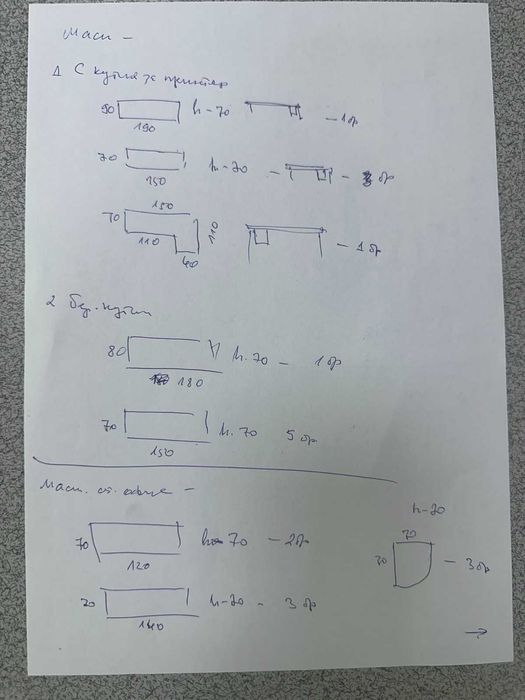 Маси -
1 С кутия за принтер
90 190 h-70 - 1 бр
70 150 h-70 - бр
150 70 110 40 110 - 1 бр
2 Без кутии
80 180 h.70 - 1 бр
70 150 h.70 5 бр
Маси
70 120 h-70 - 2 бр
70 140 h-70 - 3 бр
h-70
70 70 - 3 бр
→